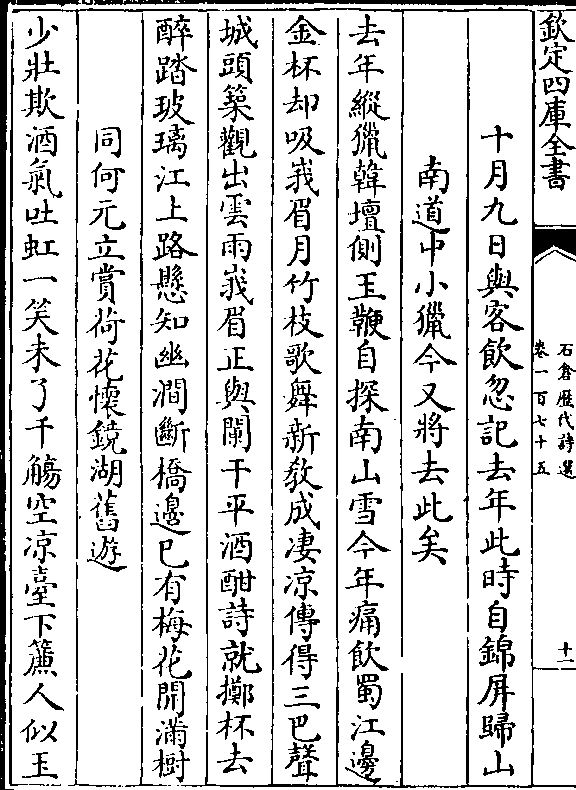 欽定四庫全書
石倉歷代詩選
卷一百七十五
十二
十月九日與客飲忽記去年此時自錦屏歸山
南道中小獵今又將去此矣
去年縱獵韓壇側玉鞭自探南山雪今年痛飲蜀江邊
金杯却吸峩眉月竹枝歌舞新教成淒凉傳得三巴聲
城頭築觀出雲雨峩眉正與闌干平酒酣詩就擲杯去
醉踏玻璃江上路懸知幽澗斷橋邊已有梅花開滿樹
同何元立賞荷花懷鏡湖舊遊
少壯欺酒氣吐虹一笑未了千觴空凉臺下簾人似玉